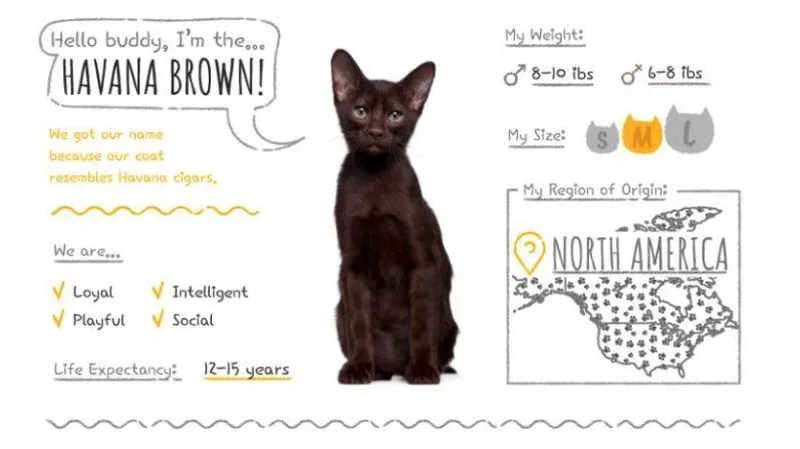 Hello buddy, I'm the...
HAVANA BROWN!
We got our name
because our coat
resembles Havana cigars.
We are...
Loyal
Intelligent
Playful
Social
Life Expectancy:
12-15 years
My Weight:
8-10 ibs
6-8 ibs
My Size:
S M L
My Region of Origin:
NORTH AMERICA